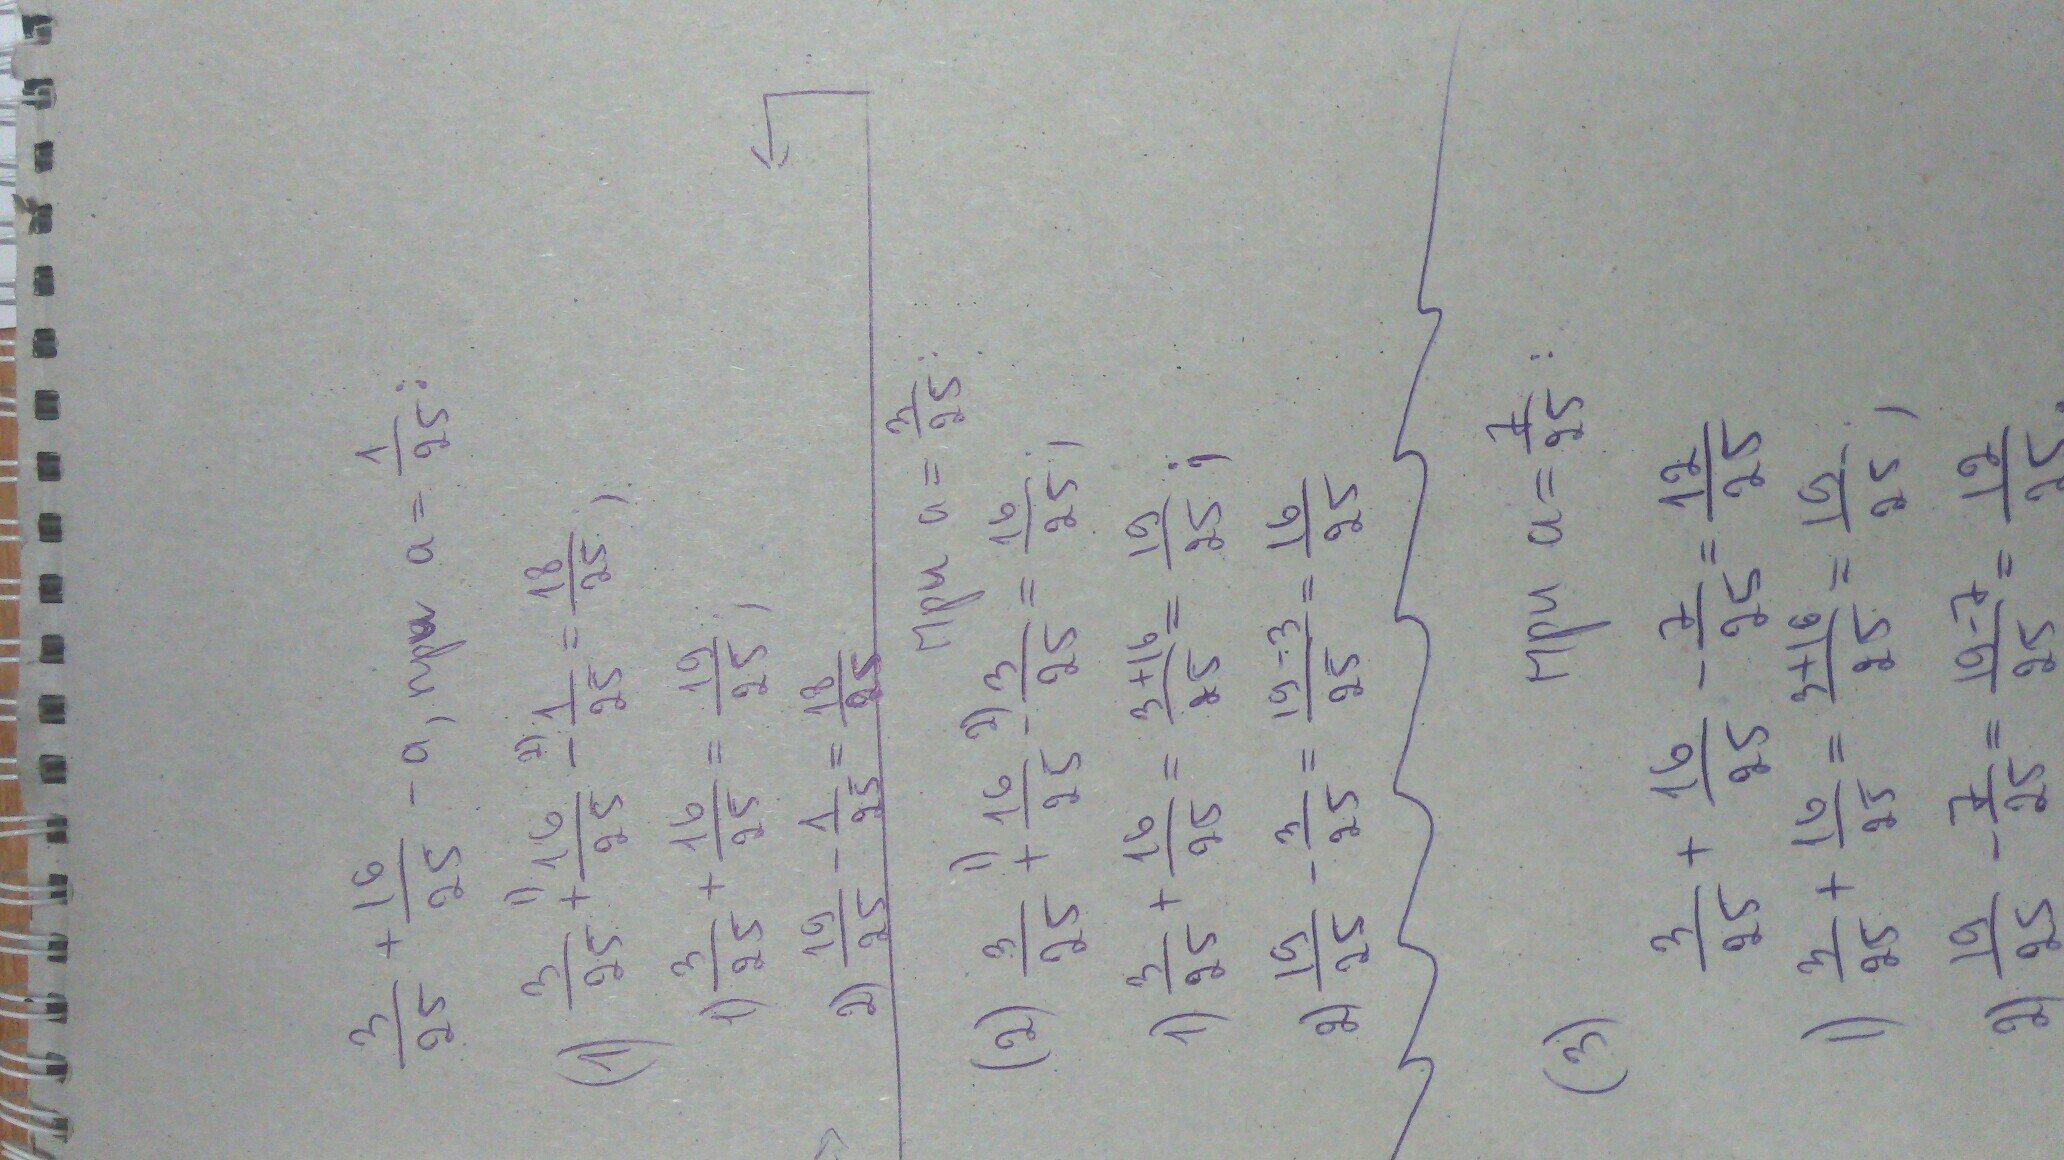 3/25 + 16/25 - a, при a = 1/25:
(1) 3/25 +¹⁾ 16/25 -²⁾ 1/25 = 18/25;
1) 3/25 + 16/25 = 19/25;
2) 19/25 - 1/25 = 18/25
При a = 3/25:
(2) 3/25 +¹⁾ 16/25 -²⁾ 3/25 = 16/25;
1) 3/25 + 16/25 = 3+16/25 = 19/25;
2) 19/25 - 3/25 = 19-3/25 = 16/25
(3) При a = 7/25:
3/25 + 16/25 - 7/25 = 12/25
1) 3/25 + 16/25 = 3+16/25 = 19/25;
2) 19/25 - 7/25 = 19-7/25 = 12/25.